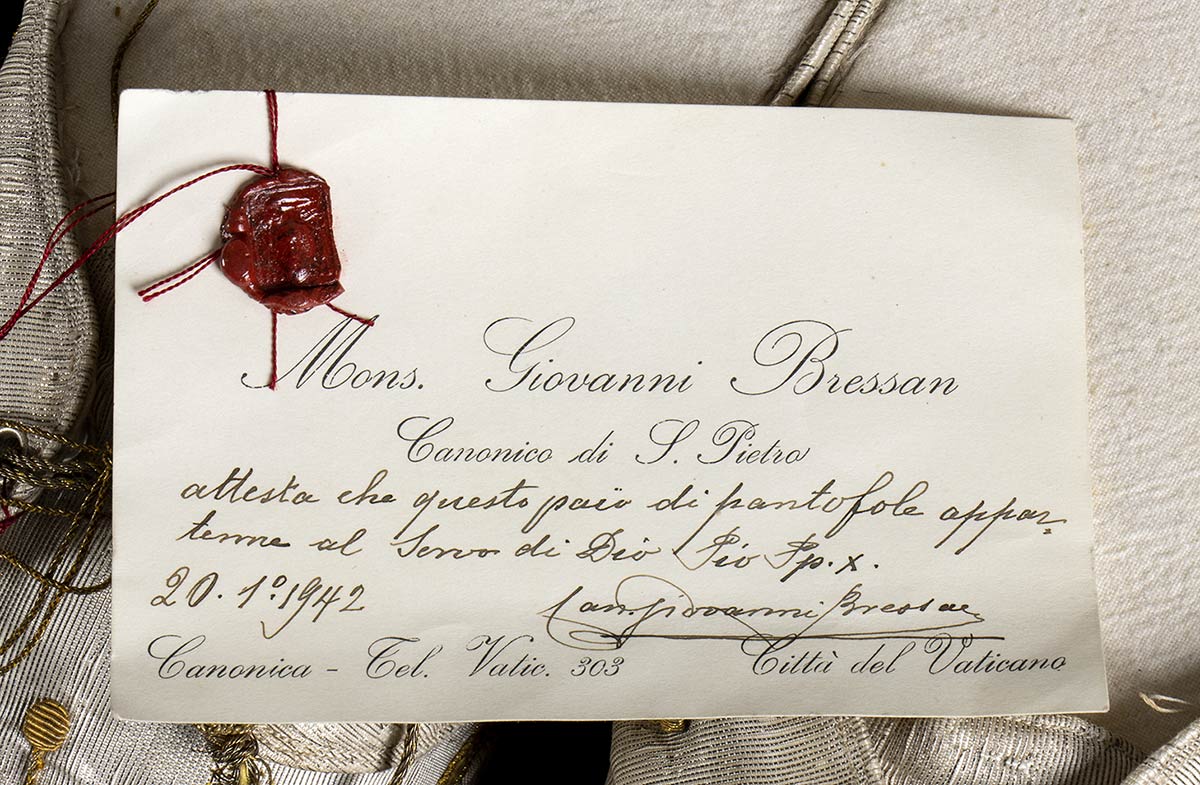 Mons. Giovanni Bressan
Canonico di S. Pietro
attesta che questo paio di pantofole appar=
tenne al Servo di Dio Pio Pp. X.
20. 1º. 1942 Can. Giovanni Bressan
Canonica - Tel. Vatic. 303 Città del Vaticano